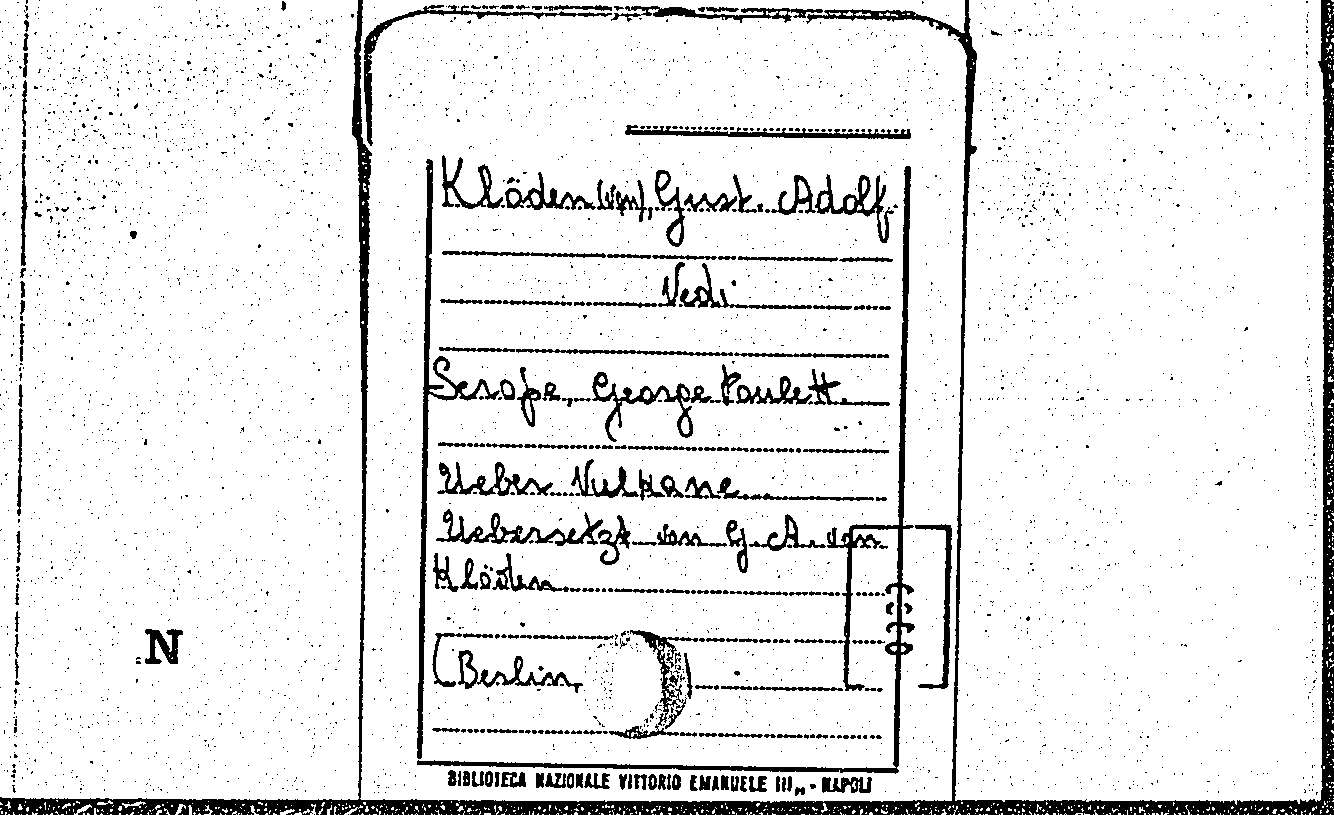 Klöden (von), Gust. Adolf.
Vedi
Scrope, George Poulett.
Ueber Vulkane...
Uebersetzt von G. A. von
Klöden.
N
(Berlin,
BIBLIOTECA NAZIONALE VITTORIO EMANUELE III,, - NAPOLI